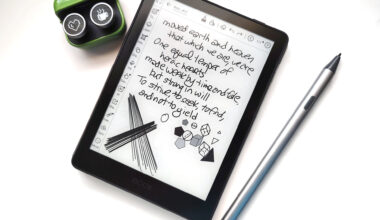 moved earth and heaven,
that which we are, we are
One equal temper of
heroic hearts,
made weak by time and fate
but strong in will
To strive, to seek, to find,
and not to yield